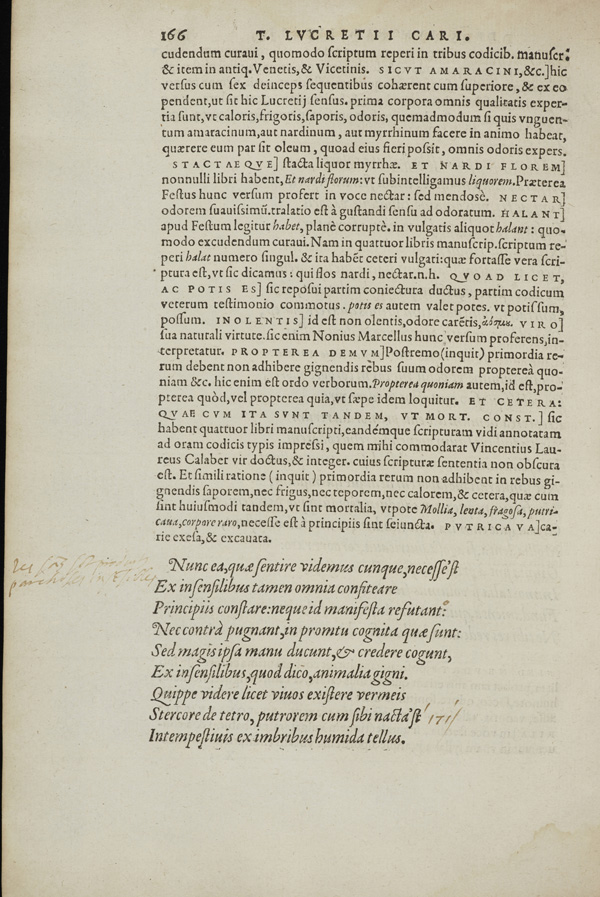 166 T. LVCRETII CARI.
cudendum curaui, quomodo scriptum reperi in tribus codicib. manuscr:
& item in antiq. Venetis, & Vicetinis. SICVT AMARACINI, &c.] hic
versus cum sex deinceps sequentibus cohærent cum superiore, & ex eo
pendent, ut sit hic Lucretij sensus. prima corpora omnis qualitatis exper-
tia sunt, vt caloris, frigoris, saporis, odoris, quemadmodum si quis vnguen-
tum amaracinum, aut nardinum, aut myrrhinum facere in animo habeat,
quærere eum par sit oleum, quoad eius fieri possit, omnis odoris expers.
STACTAEQVE] stacta liquor myrrhæ. ET NARDI FLOREM]
nonnulli libri habent, Et nardi florum: vt subintelligamus liquorem. Præterea
Festus hunc versum profert in voce nectar: sed mendosè. NECTAR]
odorem suauissimū. tralatio est à gustandi sensu ad odoratum. HALANT]
apud Festum legitur habet, planè corruptè. in vulgatis aliquot halant: quo-
modo excudendum curaui. Nam in quattuor libris manuscrip. scriptum re-
peri halat numero singul. & ita habēt ceteri vulgati: quæ fortasse vera scri-
ptura est, vt sic dicamus: qui flos nardi, nectar. n.h. QVOAD LICET,
AC POTIS ES] sic reposui partim coniectura ductus, partim codicum
veterum testimonio commotus. potis es autem valet potes. vt potissum,
possum. INOLENTIS] id est non olentis, odore carētis, ἀόσμου. VIRO]
sua naturali virtute. sic enim Nonius Marcellus hunc versum proferens, in-
terpretatur. PROPTEREA DEMVM] Postremo (inquit) primordia re-
rum debent non adhibere gignendis rebus suum odorem propterea quo-
niam &c. hic enim est ordo verborum. Propterea quoniam autem, id est, pro-
pterea quòd, vel propterea quia, vt sæpe idem loquitur. ET CETERA:
QVAE CVM ITA SVNT TANDEM, VT MORT. CONST.] sic
habent quattuor libri manuscripti, eandémque scripturam vidi annotatam
ad oram codicis typis impressi, quem mihi commodarat Vincentius Lau-
reus Calaber vir doctus, & integer. cuius scripturæ sententia non obscura
est. Et simili ratione (inquit) primordia rerum non adhibent in rebus gi-
gnendis saporem, nec frigus, nec teporem, nec calorem, & cetera, quæ cum
sint huiusmodi tandem, vt sint mortalia, vtpote Mollia, lenta, fragosa, putri-
caua, corpore raro, necesse est à principiis sint seiuncta. PVTRICAVA] ca-
rie exesa, & excauata.
Nunc ea, quæ sentire videmus cunque, necesse'st
Ex insensilibus tamen omnia confiteare
Principiis constare: neque id manifesta refutant:
Nec contrà pugnant, in promtu cognita quæ sunt:
Sed magis ipsa manu ducunt, & credere cogunt,
Ex insensilibus, quod dico, animalia gigni.
Quippe videre licet viuos existere vermeis
Stercore de tetro, putrorem cum sibi nacta'st
Intempestiuis ex imbribus humida tellus.